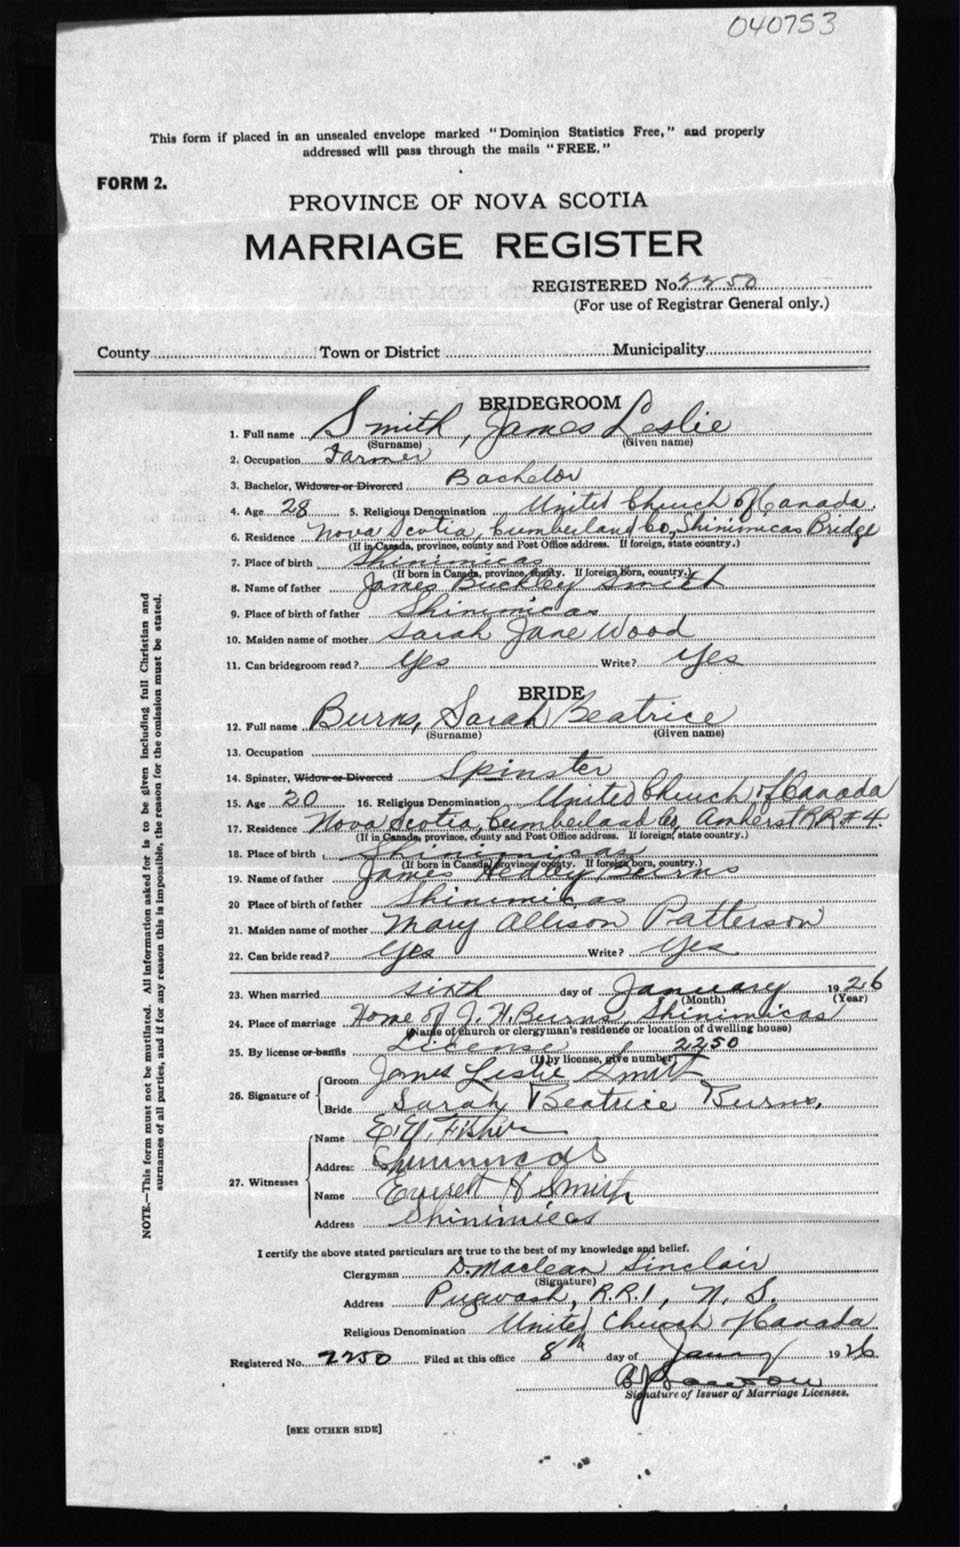 040753
This form if placed in an unsealed envelope marked "Dominion Statistics Free," and properly
addressed will pass through the mails "FREE."
FORM 2.
PROVINCE OF NOVA SCOTIA
MARRIAGE REGISTER
REGISTERED No. 2250
(For use of Registrar General only.)
County Town or District Municipality
BRIDEGROOM
1. Full name Smith, James Leslie
(Surname) (Given name)
2. Occupation Farmer
3. Bachelor, Widower or Divorced Bachelor
4. Age 28 5. Religious Denomination United Church of Canada.
6. Residence Nova Scotia, Cumberland Co, Shinimicas Bridge
(If in Canada, province, county and Post Office address. If foreign, state country.)
7. Place of birth Shinimicas
(If born in Canada, province, county. If foreign born, country.)
8. Name of father James Buckley Smith
9. Place of birth of father Shinimicas
10. Maiden name of mother Sarah Jane Wood
11. Can bridegroom read? Yes Write? Yes
BRIDE
12. Full name Burns, Sarah Beatrice
(Surname) (Given name)
13. Occupation
14. Spinster, Widow or Divorced Spinster
15. Age 20 16. Religious Denomination United Church of Canada
17. Residence Nova Scotia, Cumberland Co, Amherst RR#4.
(If in Canada, province, county and Post Office address. If foreign, state country.)
18. Place of birth Shinimicas
(If born in Canada, province, county. If foreign born, country.)
19. Name of father James Hedley Burns
20 Place of birth of father Shinimicas
21. Maiden name of mother Mary Allison Patterson
22. Can bride read? Yes Write? Yes
23. When married sixth day of January 1926
(Month) (Year)
24. Place of marriage Home of J. H. Burns, Shinimicas
(Name of church or clergyman's residence or location of dwelling house)
25. By license or banns License 2250
(If by license, give number)
26. Signature of Groom James Leslie Smith
Bride Sarah Beatrice Burns.
27. Witnesses
Name Fisher
Address Shinimicas
Name Everett H Smith
Address Shinimicas
I certify the above stated particulars are true to the best of my knowledge and belief.
Clergyman D. Maclean Sinclair
(Signature)
Address Pugwash, R.R.1, N.S.
Religious Denomination United Church of Canada
Registered No. 2250 Filed at this office 8th day of January 1926.
Signature of Issuer of Marriage Licenses.
[SEE OTHER SIDE]
NOTE.—This form must not be mutilated. All information asked for is to be given including full Christian and
surnames of all parties, and if for any reason this is impossible, the reason for the omission must be stated.